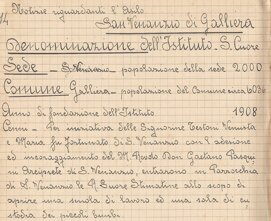 Notizie riguardanti l'Asilo
San Venanzio di Galliera
Denominazione dell'Istituto. S. Cuore
Sede - S. Venanzio - popolazione della sede 2000
Comune Galliera - popolazione del Comune circa 6030
Anno di fondazione dell'Istituto 1908
Cenni - Per iniziativa delle Signorine Testoni Venusta
e Maria fu Fortunato di S. Venanzio con l'adesione
ed incoraggiamento del M. Rvdo Don Gaetano Pasqui
Arciprete di S. Venanzio, entrarono in Parrocchia
di S. Venanzio le Suore Stimatine allo scopo di
aprire una scuola di lavoro ed una sala di cu
stodia dei piccoli bimbi